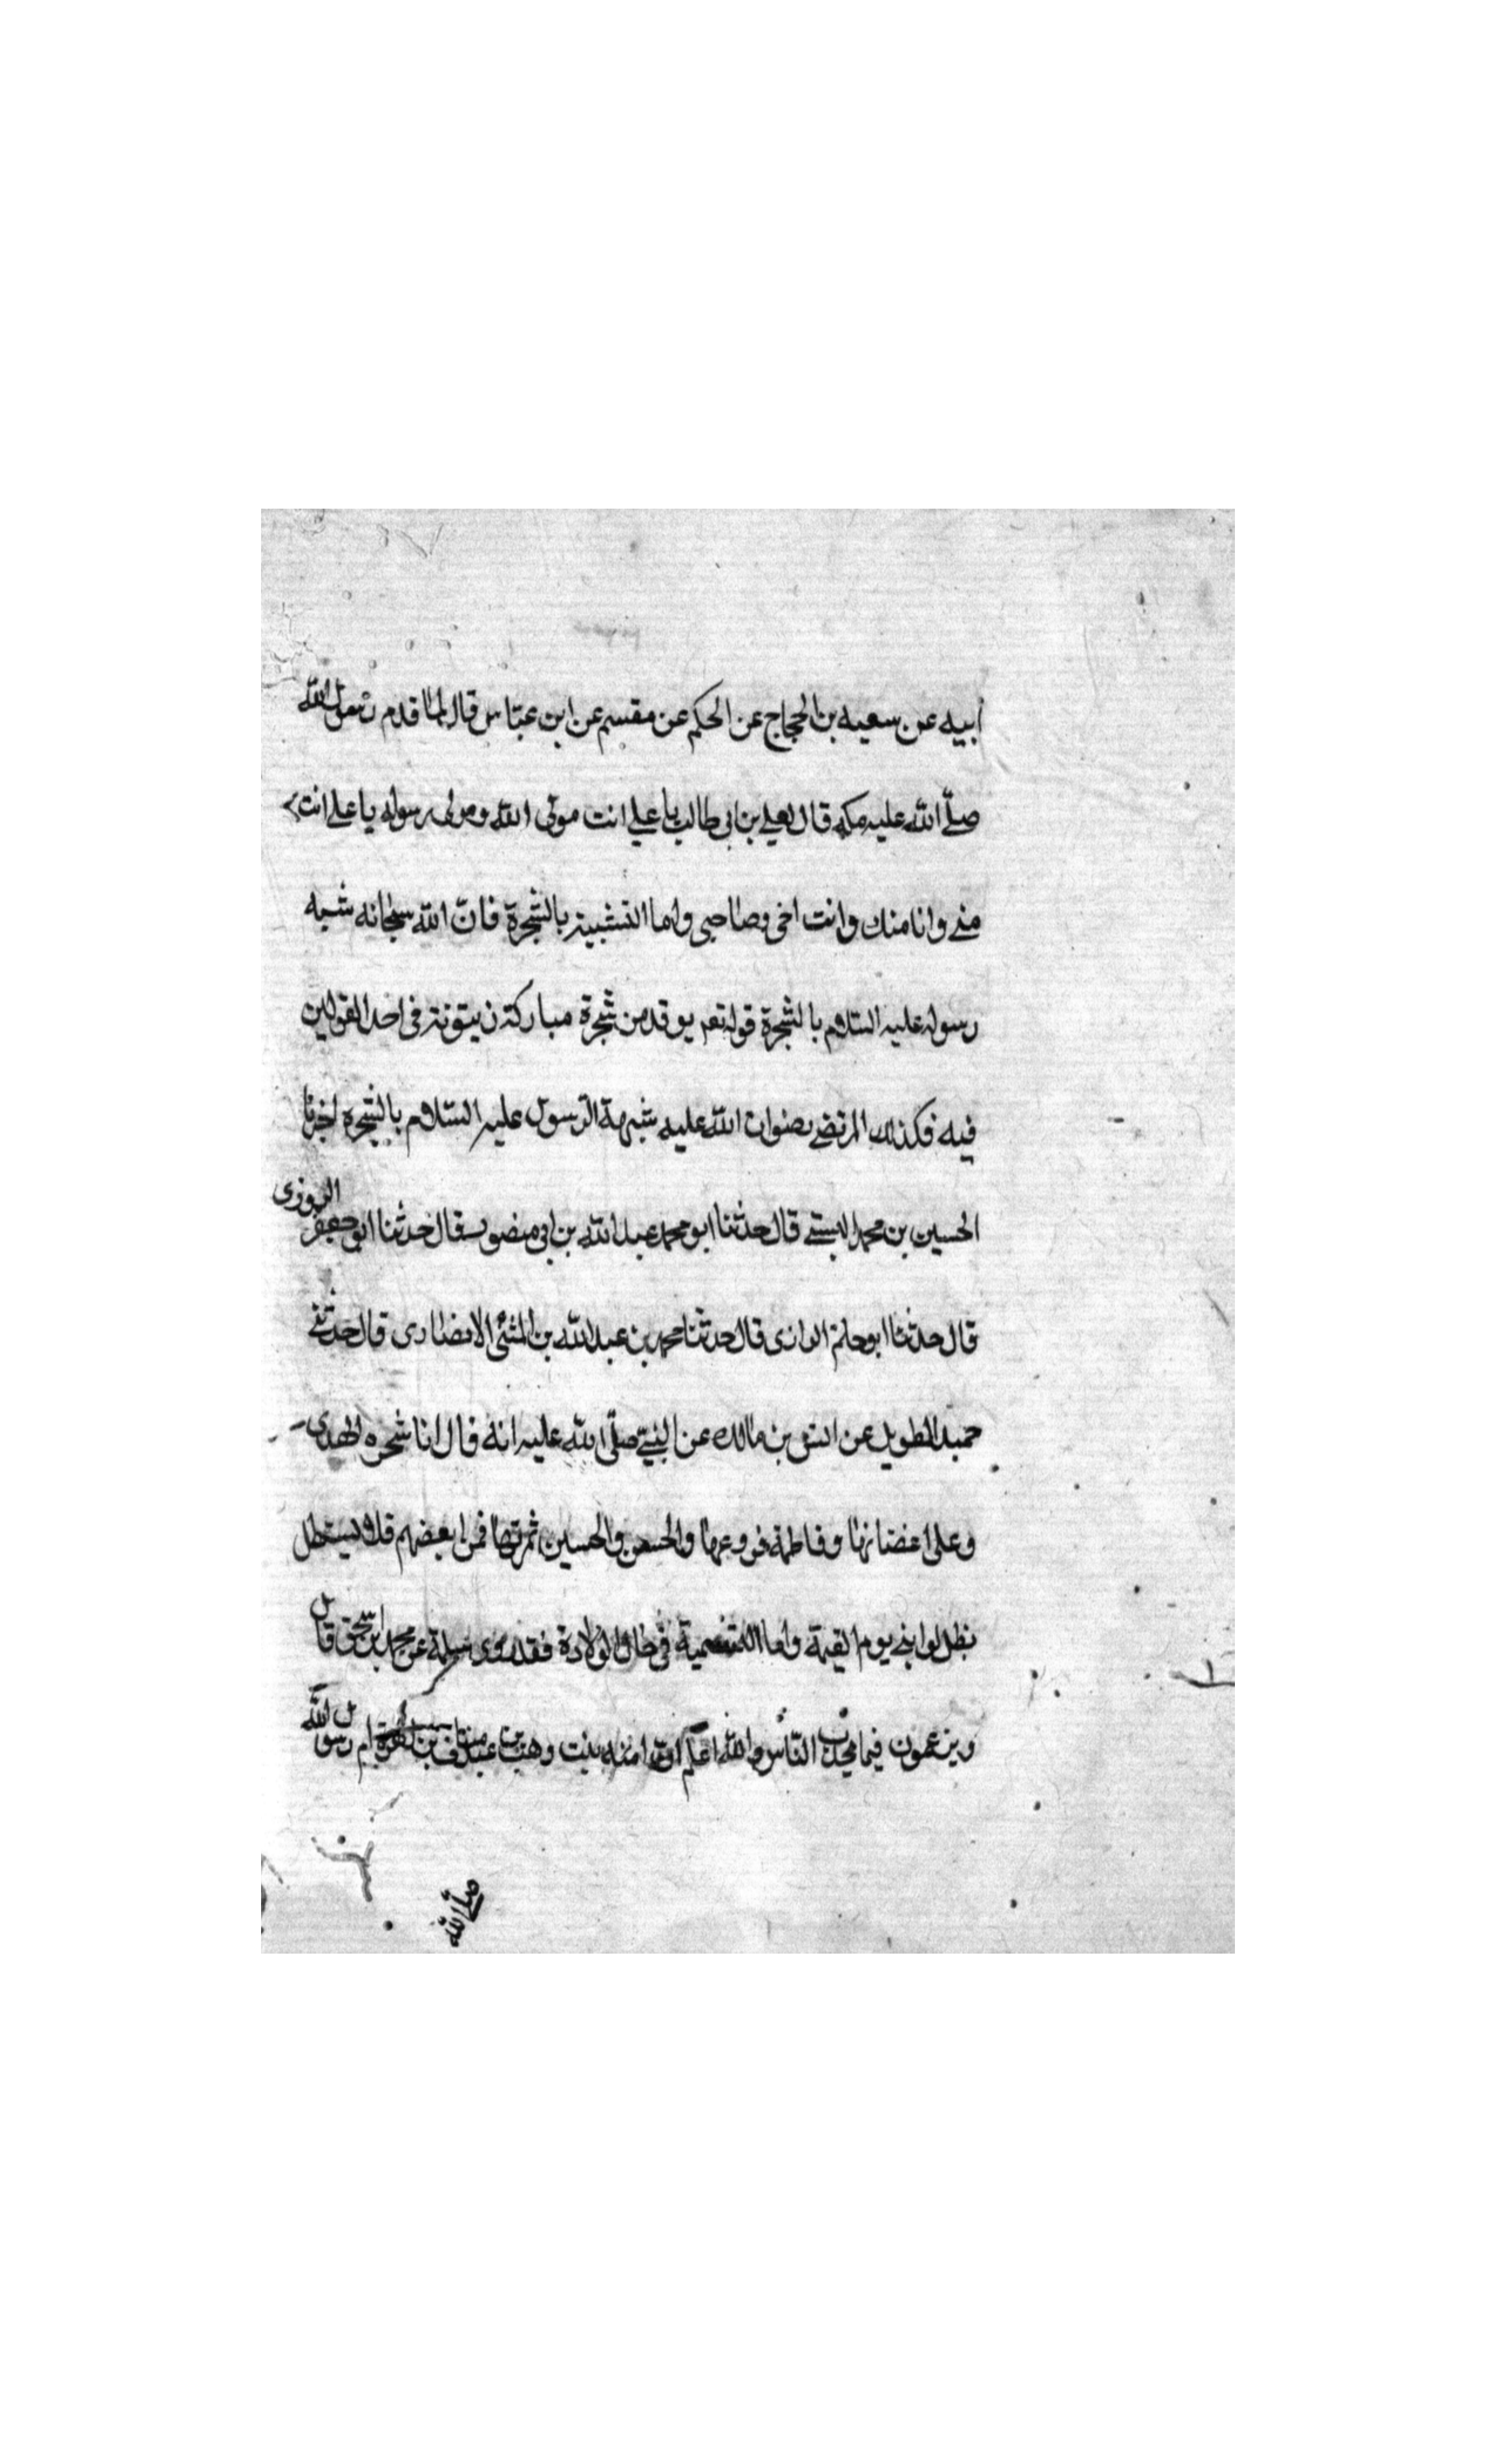 ابيه عن سعيد بن الحجاج عن الحكم عن مقسم عن ابن عباس قال لما قدم رسول الله
صلّى الله عليه مكه قال لعلي بن ابي طالب يا علي انت مولى الله ومولى رسوله يا علي انت
مني وانا منك وانت اخي وصاحبي واما التشبيه بالشجرة فانّ الله سبحانه شبه
رسوله عليه السلام بالشجرة قوله تعر يوقد من شجرة مباركة زيتونة في احد القولين
فيه فكذلك المرتضى رضوان الله عليه شبهه الرسول عليه السلام بالشجره اخبرنا
الحسين بن محمد البستي قال حدثنا ابو محمد عبد الله بن ابي منصور قال حدثنا ابو جعفر
قال حدثنا ابو حاتم الرازى قال حدثنا محمد بن عبد الله بن المثنى الانصارى قال حدثني
حميد الطويل عن انس بن مالك عن النبي صلّى الله عليه انه قال انا شجره الهدى
وعلى اغصانها وفاطمة فروعها والحسن والحسين ثمرتها فمن ابغضهم فلا يستظل
بظل لوابي يوم القيمة واما التسمية في حال الولادة فقد روى سلمة عن محمد ابن اسحق قال
ويزعمون فيما يتحدث الناس والله اعلم ان امنه بنت وهب بن عبد مناف بن ام رسول الله
صلى الله